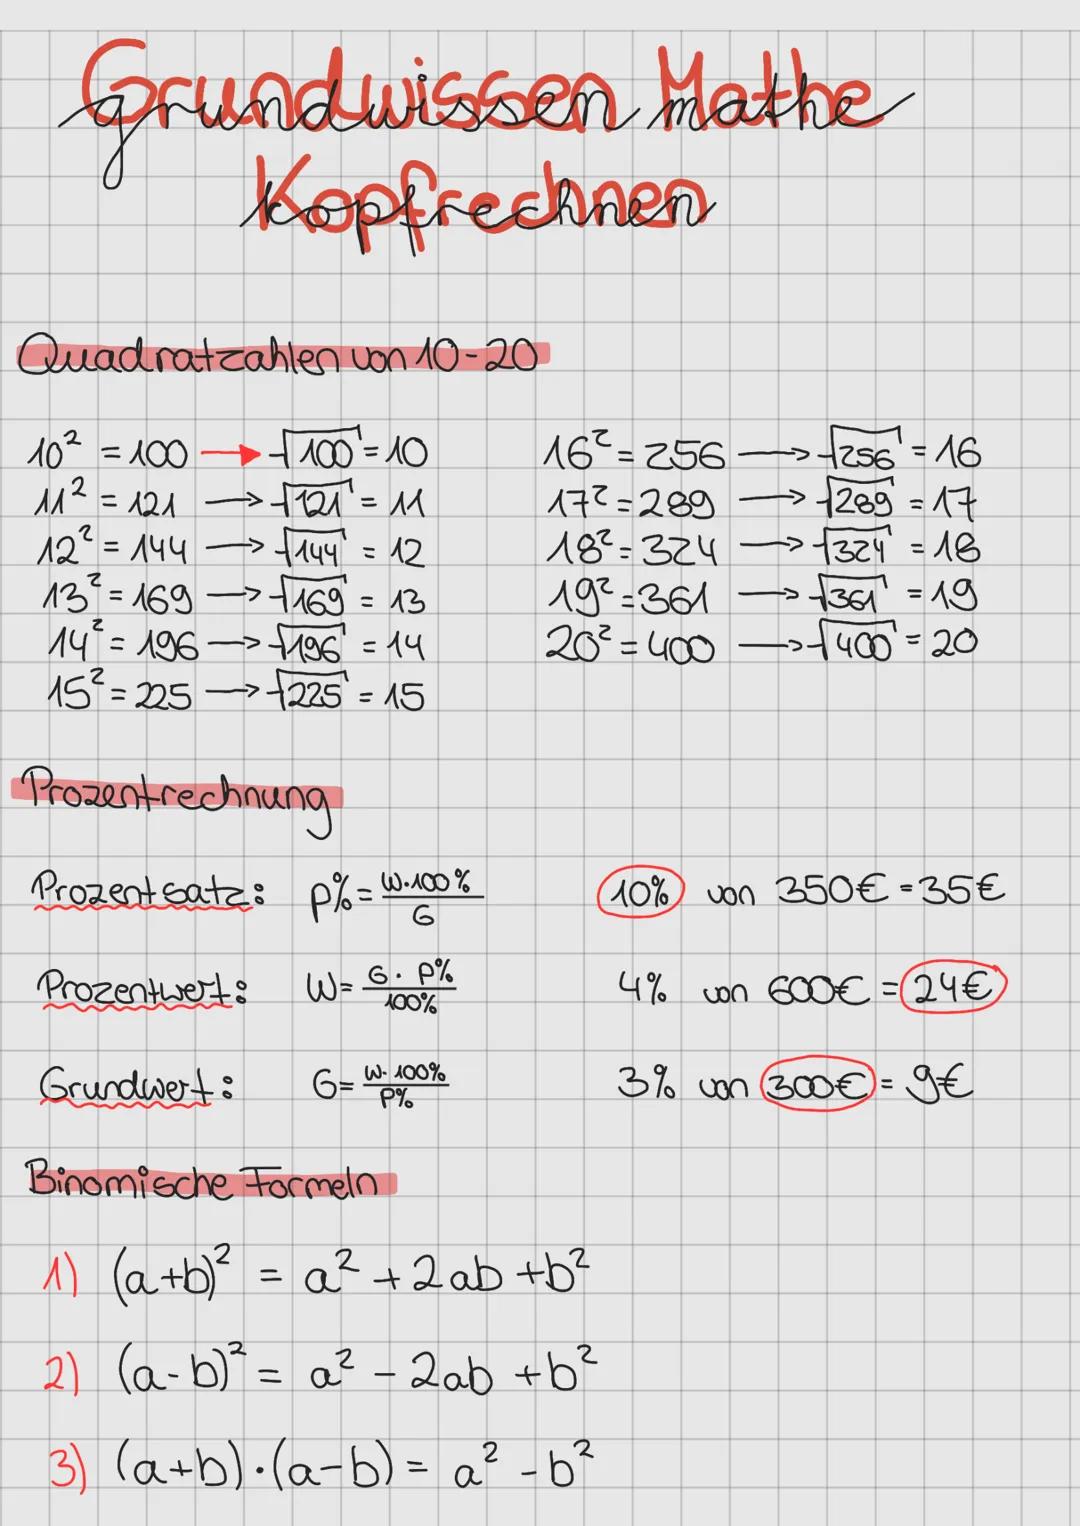 Grundwissen Mathe
Kopfrechnen
Quadratzahlen von 10-20
10² = 100 → √100 = 10
11² = 121 → √121 = 11
12² = 144 → √144 = 12
13² = 169 → √169 = 13
14² = 196 → √196 = 14
15² = 225 → √225 = 15
16² = 256 → √256 = 16
17² = 289 → √289 = 17
18² = 324 → √324 = 18
19² = 361 → √361 = 19
20² = 400 → √400 = 20
Prozentrechnung
Prozentsatz: p% = W·100% / G 10% von 350€ = 35€
Prozentwert: W = G · P% / 100% 4% von 600€ = 24€
Grundwert: G = W·100% / P% 3% von 300€ = 9€
Binomische Formeln
1) (a+b)² = a² + 2ab + b²
2) (a-b)² = a² - 2ab + b²
3) (a+b)·(a-b) = a² - b²